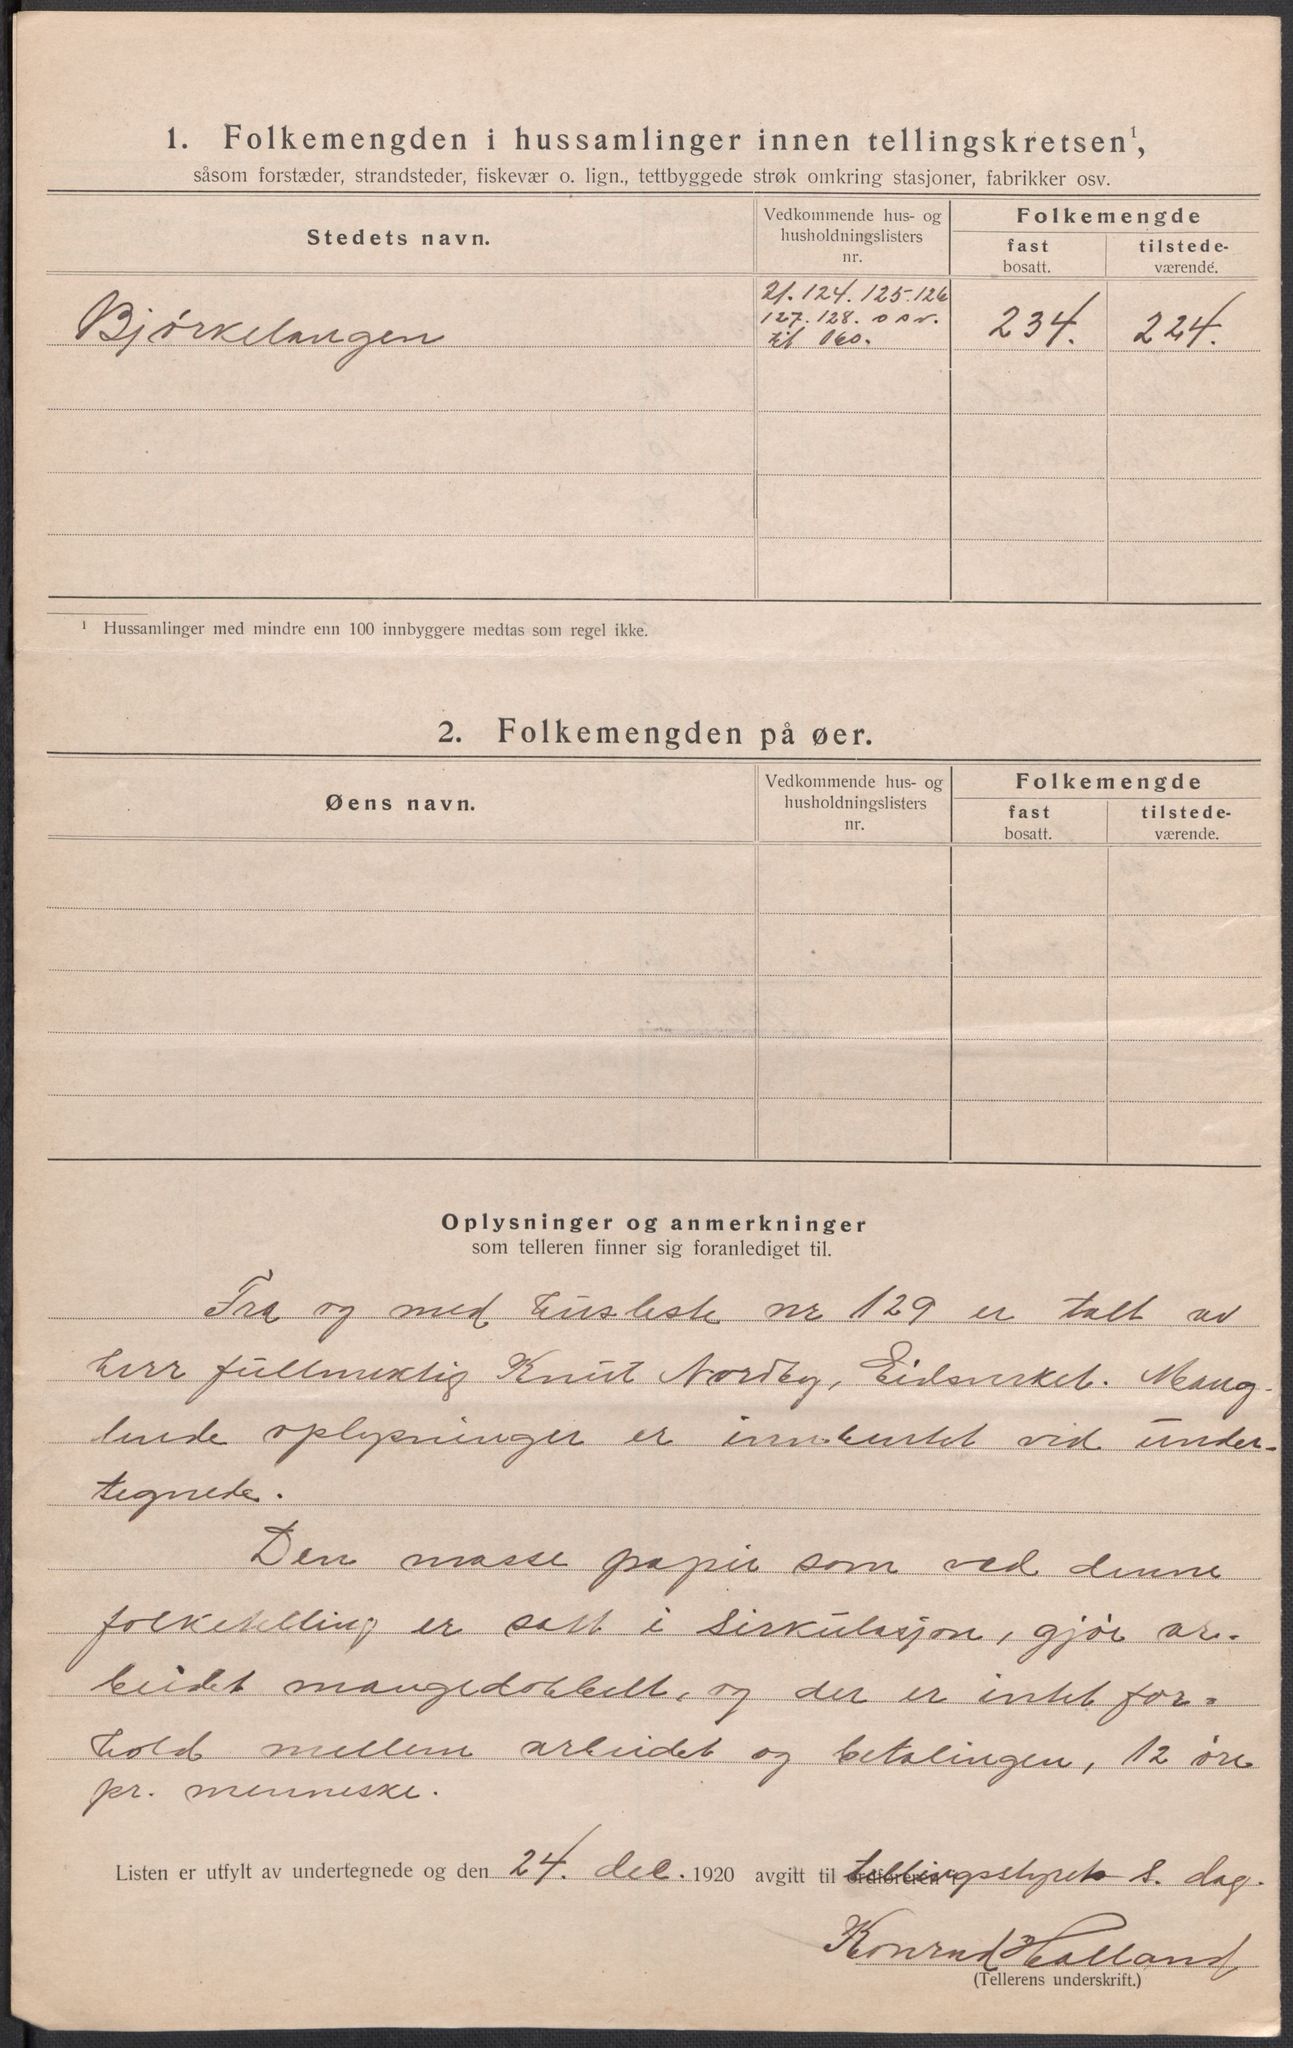 1. Folkemengden i hussamlinger innen tellingskretsen¹,
såsom forstæder, strandsteder, fiskevær o. lign., tettbyggede strøk omkring stasjoner, fabrikker osv.
Stedets navn.
Vedkommende hus- og
husholdningslisters
nr.
Folkemengde
fast
bosatt.
tilstede-
værende.
Bjørkelangen
21. 124. 125. 126
127. 128. osv.
til 160.
234.
224.
¹ Hussamlinger med mindre enn 100 innbyggere medtas som regel ikke.
2. Folkemengden på øer.
Øens navn.
Vedkommende hus- og
husholdningslisters
nr.
Folkemengde
fast
bosatt.
tilstede-
værende.
Oplysninger og anmerkninger
som telleren finner sig foranlediget til.
Fra og med husliste nr 129 er talt av
herr fullmektig Knut Nordby, Eidsverket. Mang-
lende oplysninger er innhentet ved under-
tegnede.
Den masse papir som ved denne
folketelling er satt i sirkulasjon, gjør ar-
beidet mangedobbelt, og der er intet for-
hold mellem arbeidet og betalingen, 12 øre
pr. menneske.
Listen er utfylt av undertegnede og den 24. dec. 1920 avgitt til ordføreren tellingsstyret s. dag.
Konrad Halland
(Tellerens underskrift.)